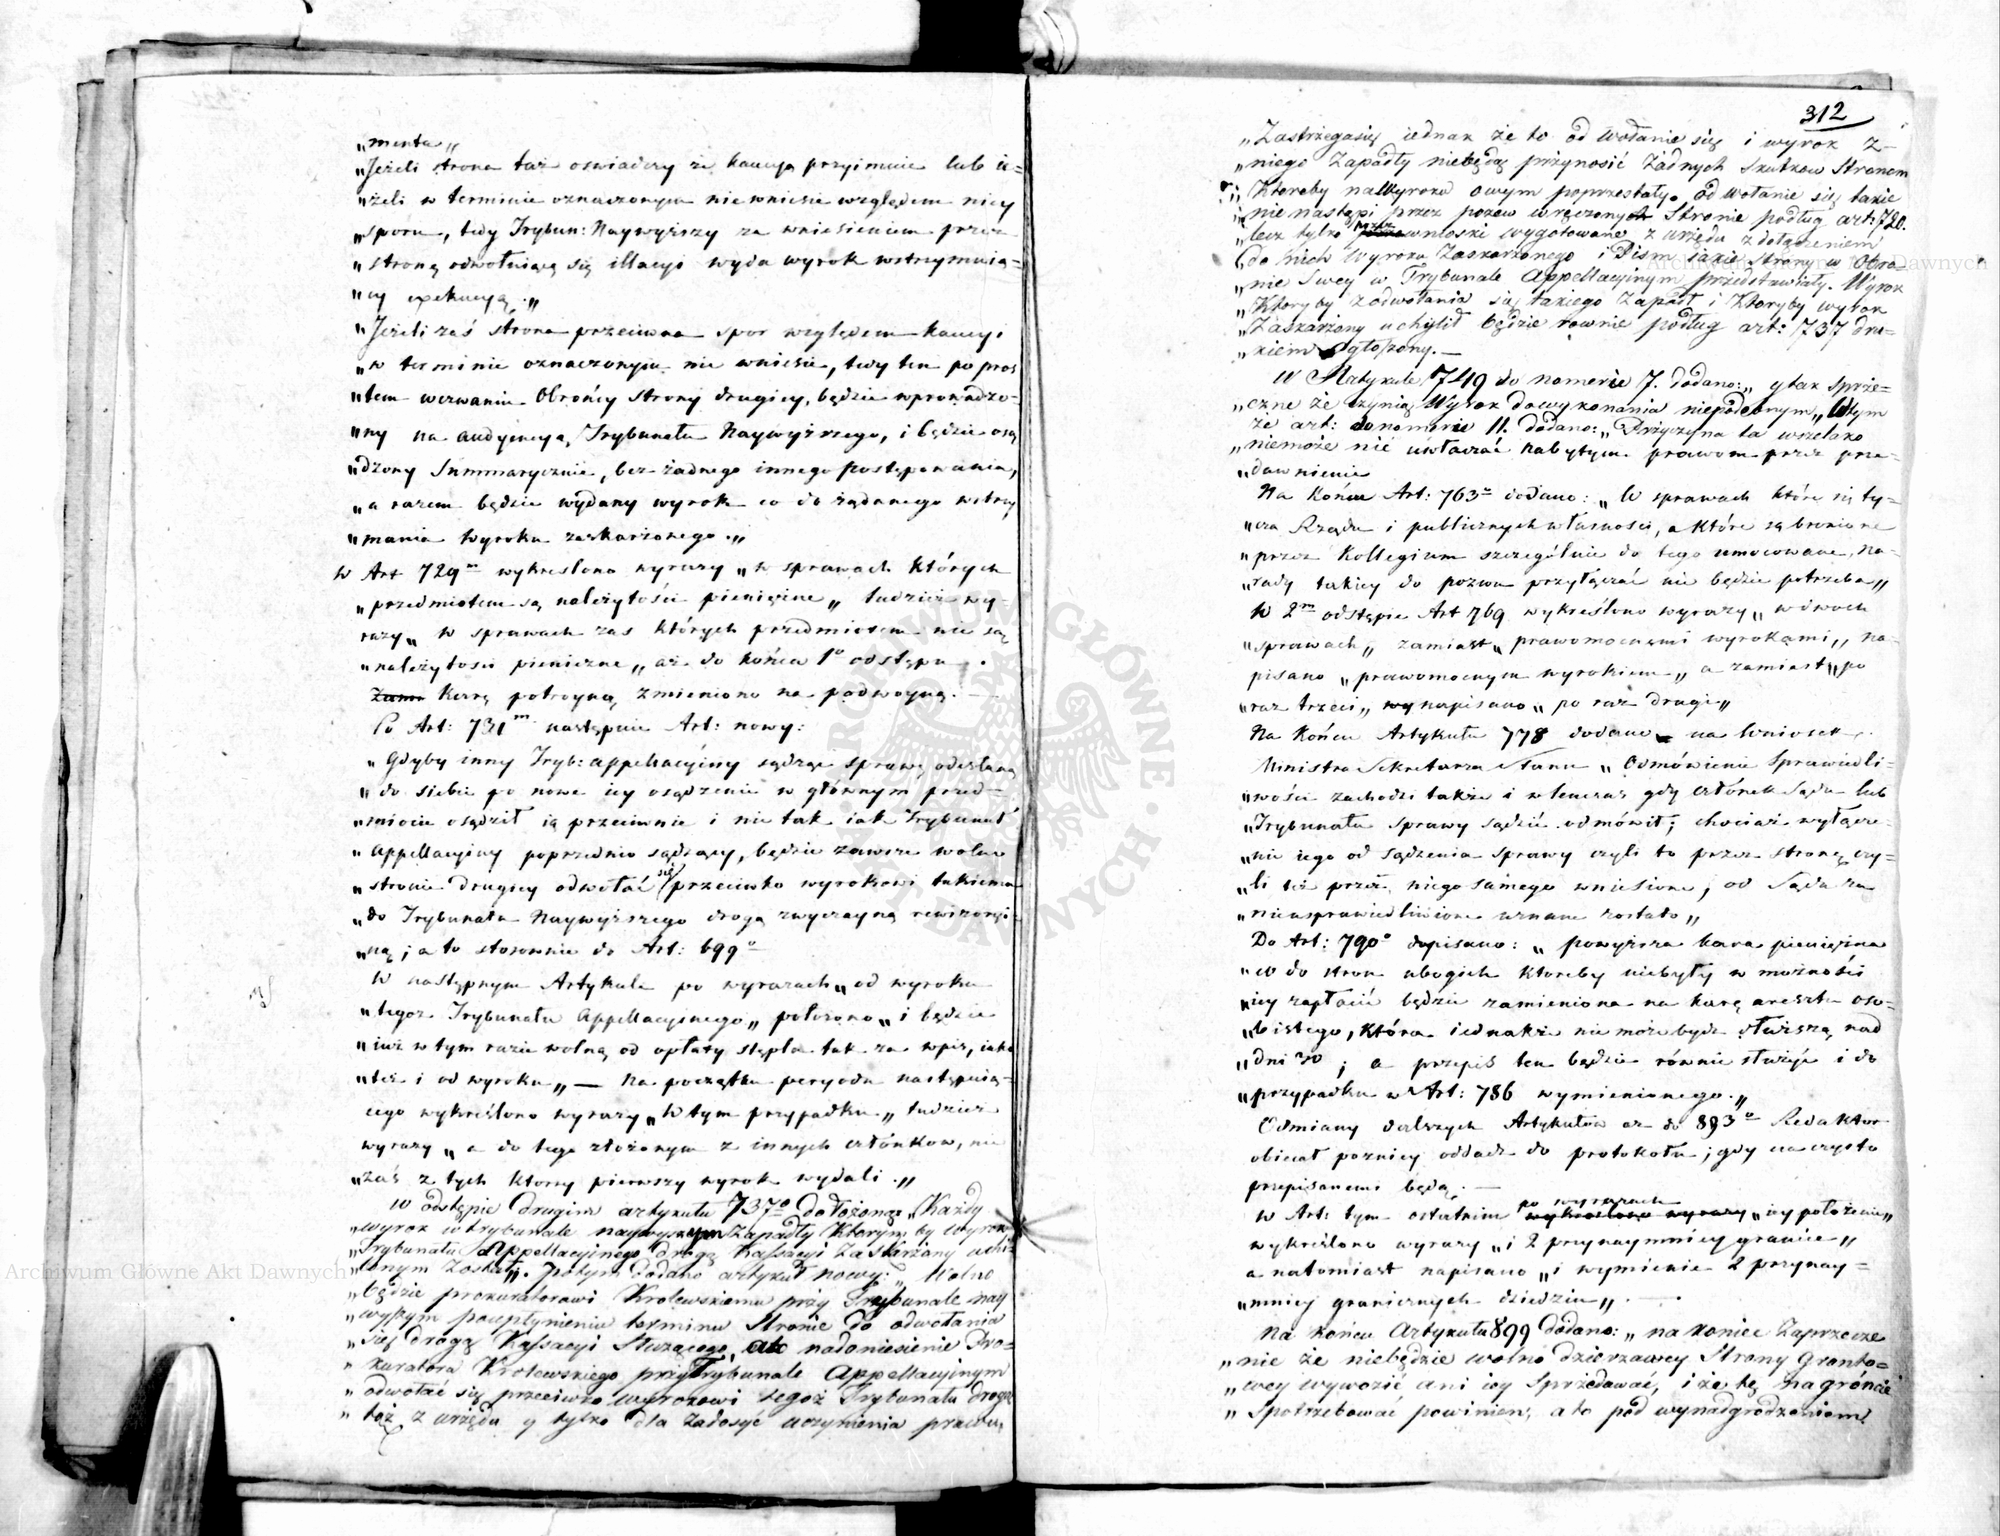 „menta„
„Jeżeli strona taż oswiadczy że kaucyą przyimuie lub ie=
„żeli w terminie oznaczonym nie wniesie względem niey
„sporu, tedy Trybun: Naywyższy za wniesieniem przez
„stronę odwołuiącą się illacyi wyda wyrok wstrzymuią=
„cy exekucyą.„
„Jeżeli zaś strona przeciwna spor względem kaucyi
„w terminie oznaczonym nie wniesie, tedy ten po pros
„tem wezwaniu Obrońcy strony drugiey, będzie wprowadzo=
„ny na audyencyą Trybunału Naywyższego, i będzie osą
„dzony Summarycznie, bez żadnego innego postępowania,
„a razem będzie wydany wyrok co do żądanego wstrzy
„mania wyroku zaskarżonego.„
W Art 729m wykreslono wyrazy „w sprawach których
„przedmiotem są należytości pieniężne„ tudzież wy-
razy„ w sprawach zas których przedmiotem nie są
„należytości pieniczne„ aż do końca 1o odstępu.
Karę potroyną zmieniono na podwoyną. —
Po Art: 731m następuie Art: nowy:
„Gdyby inny Tryb: appellacyiny sądząc sprawę odesłaną
„do siebie po nowe iey osądzenie w głównym przed-
„miocie osądził ią przeciwnie i nie tak iak Trybunał
„Appellacyiny poprzednio sądzący, będzie zawsze wolno
„stronie drugiey odwołać się przeciwko wyrokowi takiemu
„do Trybunału Naywyższego drogą zwyczayną rewizoryi-
„ną; a to stosownie do Art: 699o
W następnym Artykule po wyrazach„ od wyroku
„tegoż Trybunału Appellacyinego„ położono„ i będzie
„iuż w tym razie wolną od opłaty stępla tak za wpis, iako
„też i od wyroku„ — Na początku peryodu następuią-
cego wykréślono wyrazy „W tym przypadku„ tudzież
wyrazy „a do tego złożonym z innych członkow, nie
„zaś z tych ktorzy pierwszy wyrok wydali.„
W odstępie drugim artykułu 737o dołożono „Każdy
„wyrok w trybunale naywyższym zapadły Którym by wyrok
„Trybunału Appellacyinego drogą Kassacyi zaskarżony uchy
„lonym został„. Potym dodano artykuł nowy: „Wolno
„będzie prokuratorowi Krolewskiemu przy Trybunale nay
„wyższym po upłynieniu terminu Stronie do odwołania
„się drogą Kassacyi służącego, na doniesienie Pro=
„kuratora Krolewskiego przy Trybunale Appellacyinym
„odwołać się przeciwko wyrokowi tegoż Trybunału drogą
„też z urzędu y tylko dla zadosyć uczynienia prawu,
312
„Zastrzegasię iednak że to od wołanie się i wyrok z-
„niego zapadły niebędą przynosić żadnych skutkow Stronom
„Ktoreby na Wyroku owym poprzestały. od wołanie się takie
„nie nastąpi przez pozew wręczony Stronie podług art: 720.
„lecz tylko przez wnioski wygotowane z urzędu z dołączeniem
„do nich Wyroku Zaskarżonego i Pism iakie strony w obro-
„nie Swey w Trybunale Appellacyinym przedstawiały. Wyrok
„Ktoryby z odwołania się takiego zapadł i Ktoryby wyrok
„Zaskarżony uchylił będzie rownie podług art: 737 dru-
„kiem ogłoszony. —
W Artykule 749 do numeru 7. dodano: „y tak sprze=
„czne że czynią Wyrok do wykonania niepodobnym„ Wtym
że art: do numeru 11. dodano: „Przyczyna ta wszelako
„niemoże nić uwłaczać nabytym prawom przez prze-
„dawnienie
Na końcu Art: 763o dodano: „W sprawach które się ty-
„czą Rządu i publicznych własności, a które są bronione
„przez Kollegium szczególnie do tego umocowane, na-
„rady takiey do pozwu przyłączać nie będzie potrzeba„
W 2m odstępie Art 769 wykréślono wyrazy „w dwoch
„sprawach„ zamiast„ prawomocnemi wyrokami„ na-
pisano „prawomocnym wyrokiem„ a zamiast „po
„raz trzeci„ napisano „po raz drugi„
Na końcu Artykułu 778 dodano na wniosek
Ministra Sekretarza Stanu „Odmówienie Sprawiedli-
„wości zachodzi także i wtenczas gdy członek Sądu lub
„Trybunału sprawy sądzić odmówił; chociaż wyłącze-
„nie iego od sądzenia sprawy czyli to przez stronę czy-
„li też przez niego samego wniesione, od Sądu za
„nieusprawiedliwione uznane zostało„
Do Art: 790o dopisano: „powyższa kara pieniężna
„co do stron ubogich ktoreby niebyły w możności
„iey zapłacić będzie zamieniona na karę aresztu oso-
„bistego, która iednakże nie może bydz dłuższą nad
„dni 30; a przepis ten będzie równie służyć i do
„przypadku w Art: 786 wymienionego.„
Odmiany dalszych Artykułów aż do 893o Redaktor
obiecał pozniey oddać do protokołu; gdy na czysto
przepisanemi będą. —
W Art: tym ostatnim po wyrazach „iey położenie„
wykréślono wyrazy „i 2 przynaymniéy granice„
a natomiast napisano „i wymienie 2 przynay=
„mniéy granicznych dziedzin„. —
Na końcu Artykułu 899 dodano: „na koniec Zaprzecze
„nie że niebędzie wolno dzierzawcy Słomy Grunto=
„wey wywozić ani iey Sprzedawać, i że tę na gróncie
„Spotrzebować powinien, a to pod wynadgrodzeniem